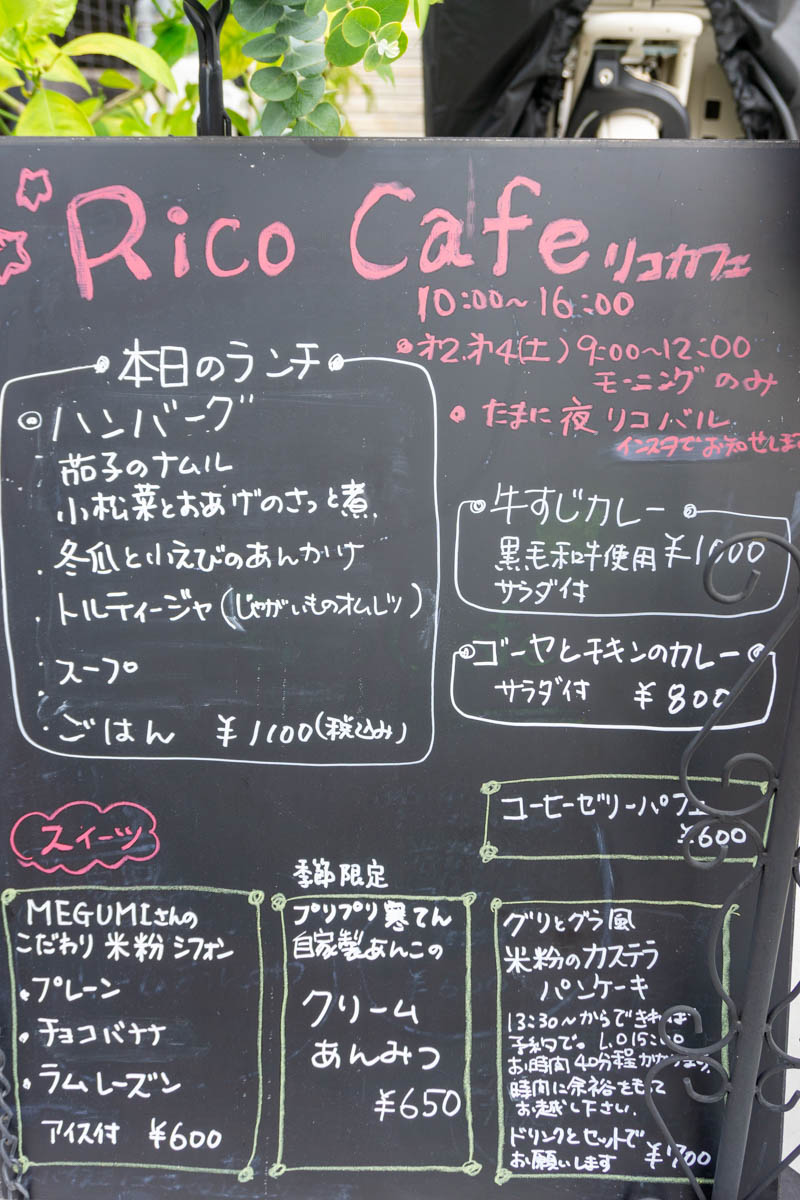 Rico Cafe リコカフェ
10:00~16:00
・第2.第4(土) 9:00~12:00
モーニングのみ
・たまに夜リコバル
インスタでお知せします
本日のランチ
◎ハンバーグ
茄子のナムル
小松菜とおあげのさっと煮
・冬瓜と小えびのあんかけ
・トルティージャ(じゃがいものオムレツ)
・スープ
・ごはん ¥1100(税込み)
牛すじカレー
黒毛和牛使用 ¥1000
サラダ付
ゴーヤとチキンのカレー
サラダ付 ¥800
コーヒーゼリーパフェ
¥600
スイーツ
MEGUMIさんの
こだわり米粉シフォン
・プレーン
・チョコバナナ
・ラムレーズン
アイス付 ¥600
季節限定
プリプリ寒てん
自家製あんこの
クリーム
あんみつ
¥650
グリとグラ風
米粉のカステラ
パンケーキ
13:30~からできれば
予約で。L.O 15:00
お時間40分程かかります。
時間に余裕をもって
お越し下さい.
ドリンクとセットで
お願いします ¥700